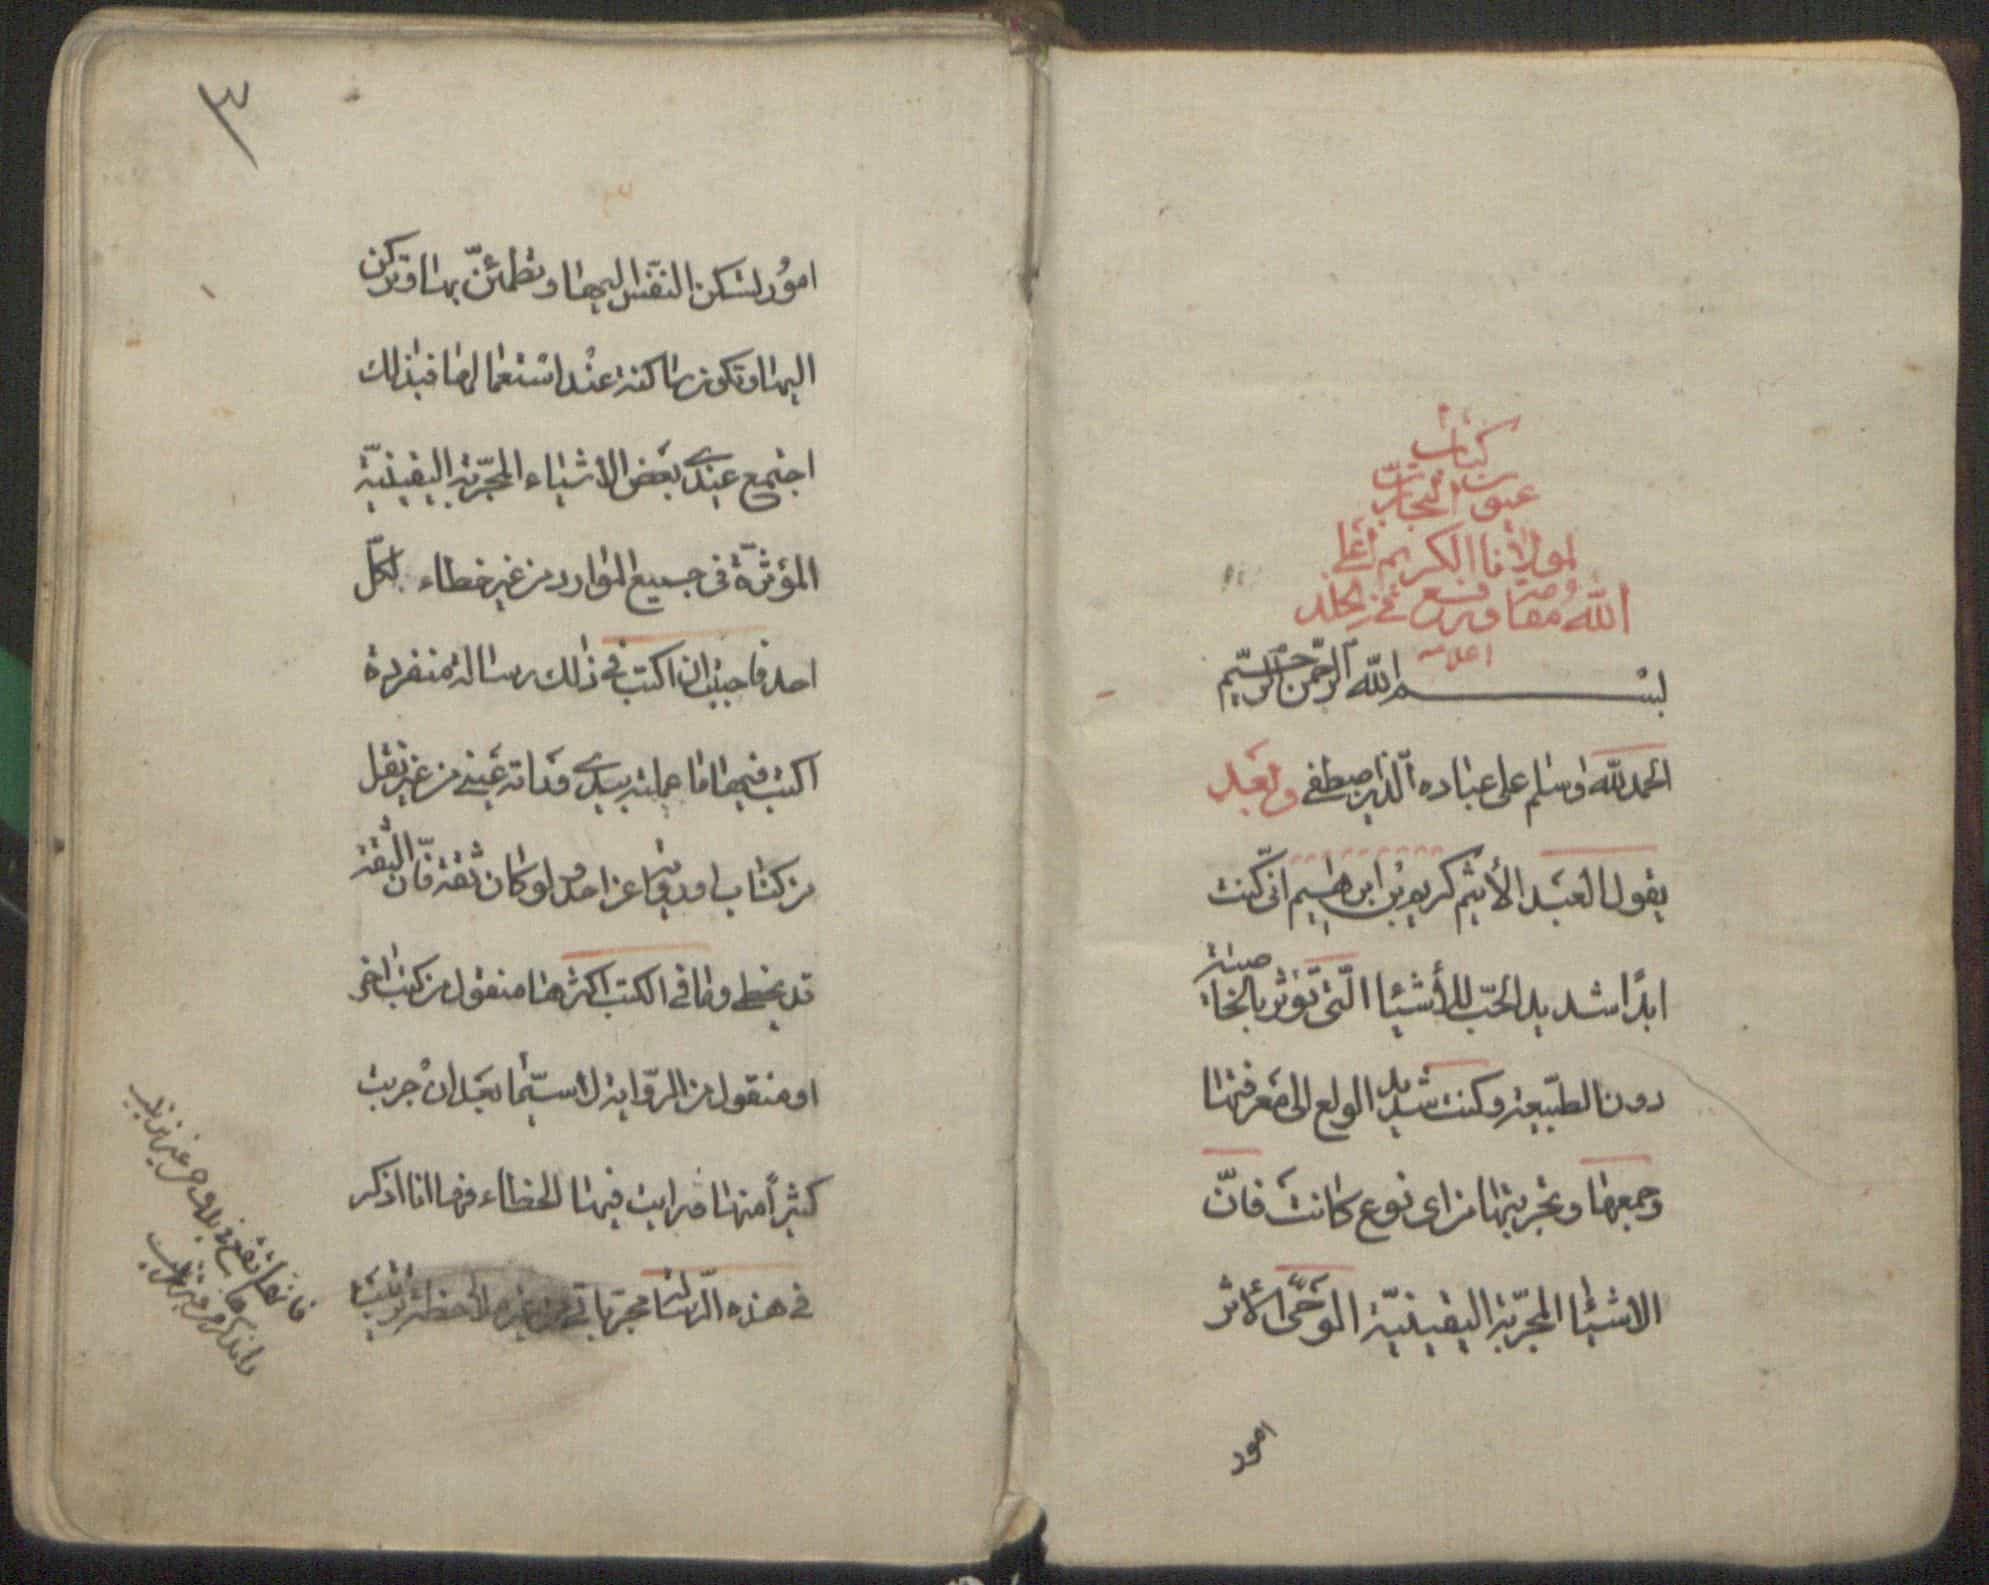 كتاب
عيون التجارب
لمولانا الكريم اعلى
الله مقامه ورفع في الخلد
اعلامه
بسم الله الرحمن الرحيم
الحمد لله وسلم على عباده الذين اصطفى وبعد
يقول العبد الأثيم كريم بن ابرهيم انى كنت
ابدًا شديد الحبّ للأشيا الّتى تؤثر بالخاصية
دون الطبيعة وكنت شديد الولع الى معرفتها
وجمعها وتجربتها من اى نوع كانت فانّ
الاشيا المجرّبة اليقينيّة الوحىّ الأثر
امور
٣
امور لتسكن النفس اليها وتطمئنّ بها وتركن
اليها وتكون ساكنة عند استعمالها فبذلك
اجتمع عندى بعض الاشياء المجرّبة اليقينيّة
المؤثرة فى جميع الموارد من غير خطاء لكلّ
احد فاحببت ان اكتب فى ذلك رسالة منفردة
اكتب فيها ما عملته بيدى وراته عينى من غير نقل
من كتاب او رواية عن احد ولو كان ثقة فانّ الثقة
قد يخطى وما فى الكتب اكثرها منقول من كتب اخر
او منقول من الرواية لا سيّما بعد ان جربت
كثيرًا منها فرايت فيها الخطاء فها انا اذكر
فى هذه الرسالة مجرباتى من غير ملاحظة ترتيب